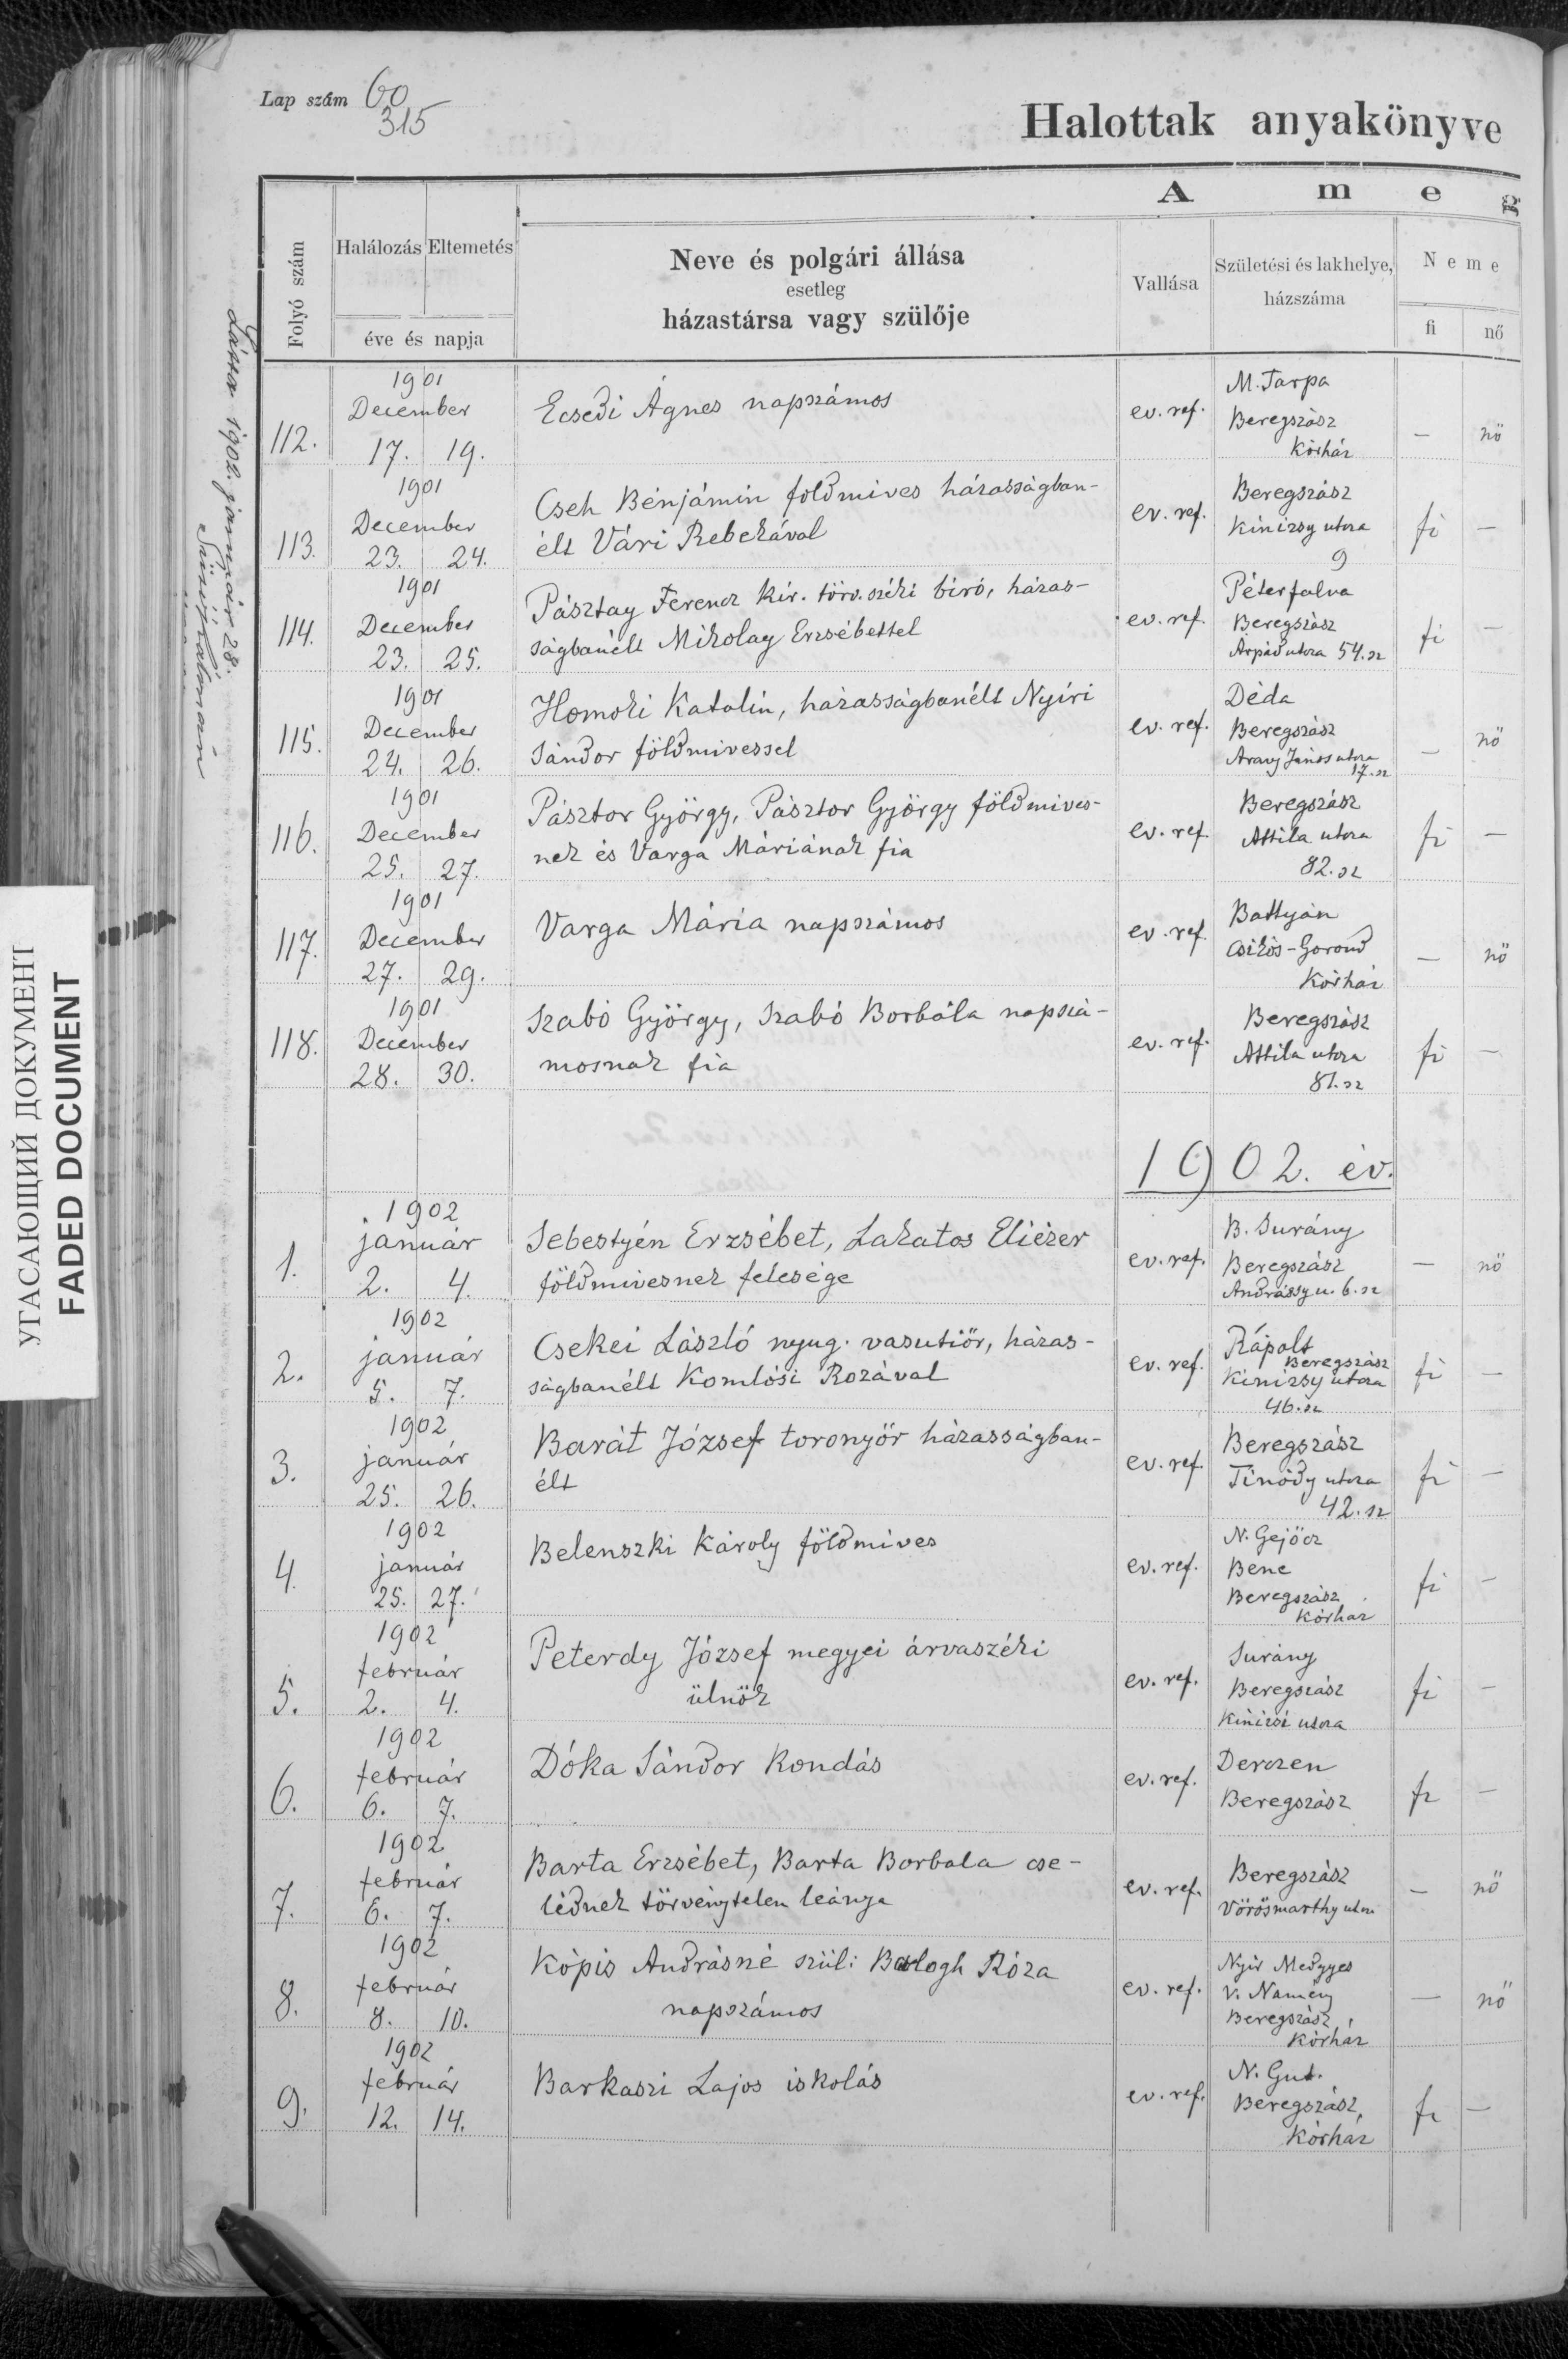 Lap szám 60
315
Halottak anyakönyve
A m e g
Folyó szám
Halálozás Eltemetés
éve és napja
Neve és polgári állása
esetleg
házastársa vagy szülője
Vallása
Születési és lakhelye,
házszáma
Neme
fi nő
Látta 1902. január 28.
УГАСАЮЩИЙ ДОКУМЕНТ
FADED DOCUMENT
112. 1901 December 17. 19. Ecsedi Ágnes napszámos ev. ref. M. Tarpa Beregszász Kórház — nő
113. 1901 December 23. 24. Cseh Bénjámin földmives házasságban-
élt Vári Rebekával ev. ref. Beregszász Kinizsy utcza 9 fi —
114. 1901 December 23. 25. Pásztay Ferencz kir. törv. széki biró, házas-
ságbanélt Mikolay Erzsébettel ev. ref. Péterfalva Beregszász Árpád utcza 54. sz fi —
115. 1901 December 24. 26. Homoki Katalin, házasságbanélt Nyíri
Sándor földmivessel ev. ref. Déda Beregszász Arany János utcza 17. sz — nő
116. 1901 December 25. 27. Pásztor György, Pásztor György földmives-
nek és Varga Máriának fia ev. ref. Beregszász Attila utcza 82. sz fi —
117. 1901 December 27. 29. Varga Mária napszámos ev. ref. Battyán Csikós-Gorond Kórház — nő
118. 1901 December 28. 30. Szabó György, Szabó Borbála napszá-
mosnak fia ev. ref. Beregszász Attila utcza 81. sz fi —
1902. év.
1. 1902 január 2. 4. Sebestyén Erzsébet, Lakatos Eliézer
földmivesnek felesége ev. ref. B. Surány Beregszász Andrássy u. 6. sz — nő
2. 1902 január 5. 7. Csekei László nyug. vasutiőr, házas-
ságbanélt Komlósi Rozával ev. ref. Rápolt Beregszász Kinizsy utcza 46. sz fi —
3. 1902 január 25. 26. Barát József toronyőr házasságban-
élt ev. ref. Beregszász Tinódy utcza 42. sz fi —
4. 1902 január 25. 27. Belenszki Károly földmives ev. ref. N. Gejőcz Bene Beregszász Kórház fi —
5. 1902 február 2. 4. Peterdy József megyei árvaszéki
ülnök ev. ref. Surány Beregszász Kinizsi utcza fi —
6. 1902 február 6. 7. Dóka Sándor Kondás ev. ref. Derczen Beregszász fi —
7. 1902 február 6. 7. Barta Erzsébet, Barta Borbala cse-
lédnek törvénytelen leánya ev. ref. Beregszász Vörösmarthy utcza — nő
8. 1902 február 8. 10. Kópis Andrásné szül: Balogh Róza
napszámos ev. ref. Nyir Medgyes V. Namény Beregszász Kórház — nő
9. 1902 február 12. 14. Barkaszi Lajos iskolás ev. ref. N. Gut. Beregszász Kórház fi —